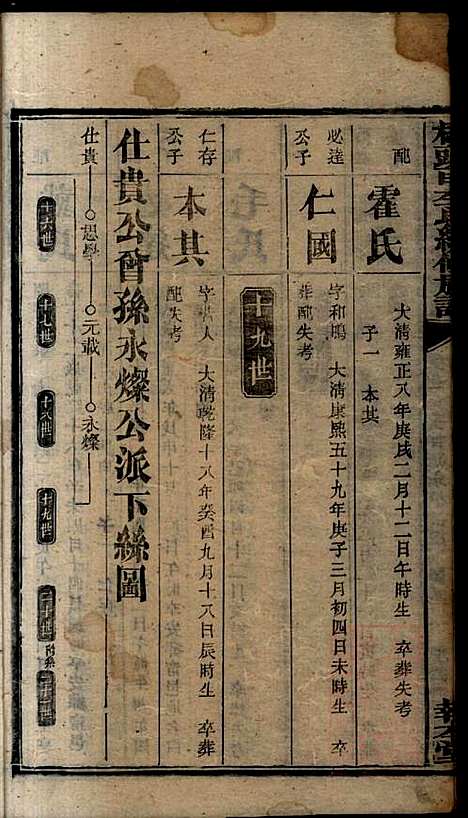 配
霍氏
大清雍正八年庚戌二月十二日午時生　卒葬失考
子一　本其
必達
公子
仁國
字和鳴　大清康熙五十九年庚子三月初四日未時生　卒
葬配失考
十九世
仁存
公子
本其
大清乾隆十八年癸酉九月十八日辰時生　卒葬
配失考
仕貴公曾孫永燦公派下絲圖
仕貴 思學 元載 永燦
十六世 十七世 十八世 十九世 二十世 附錄 二十一世